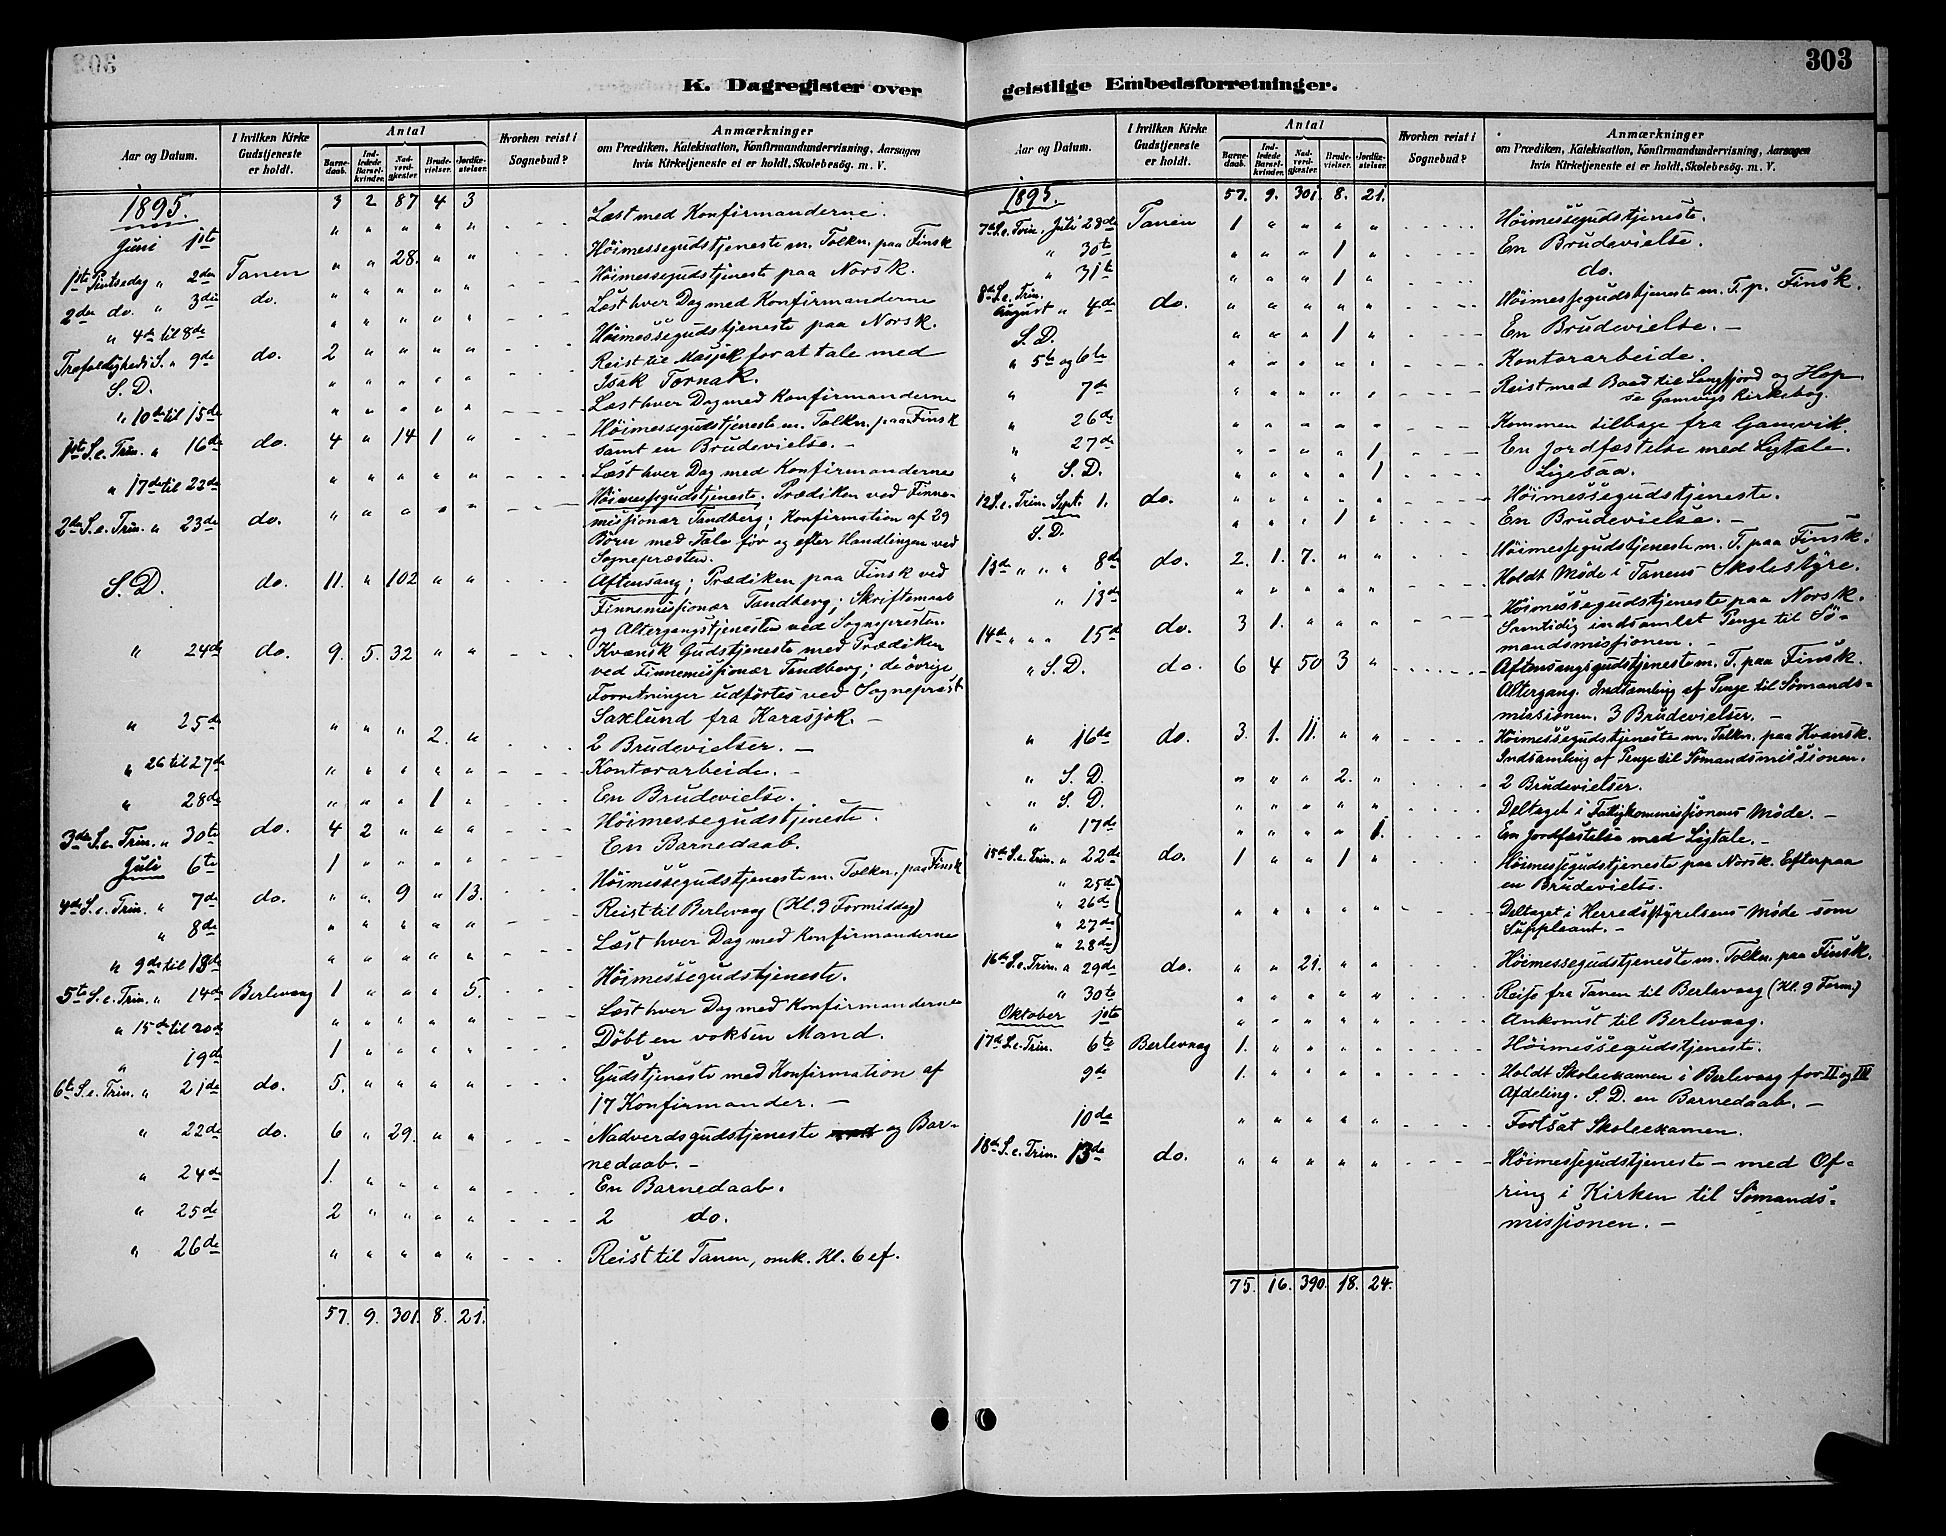 303
K. Dagregister over geistlige Embedsforretninger.
Aar og Datum. | I hvilken Kirke Gudstjeneste er holdt. | Antal | Barnedaab. | Indledede Barselkvinder. | Nadverdgjester. | Brudevielser. | Jordfæstelser. | Hvorhen reist i Sognebud? | Anmærkninger om Prædiken, Katekisation, Konfirmandundervisning, Aarsagen hvis Kirketjeneste ei er holdt, Skolebesøg. m. V.
1895. 3 2 87 4 3
Juni 1ste " " " " " - - - Læst med Konfirmanderne.
1ste Pintsedag " 2den Tanen " " 28. " " - - - Høimessegudstjeneste m. Tolkn. paa Finsk
2den do. " 3die do. " " " " " - - - Høimessegudstjeneste paa Norsk.
" 4de til 8de " " " " " - - - Læst hver Dag med Konfirmanderne
Trefoldigheds S. " 9de do. 2 " " " " - - - Høimessegudstjeneste paa Norsk.
S. D. " " " " " - - - Reist til Masjok for at tale med
Isak Tornak.
" 10de til 15de " " " " " - - - Læst hver Dag med Konfirmanderne
1ste S. e. Trin. " 16de do. 4 " 14 1 " - - - Høimessegudstjeneste m. Tolkn. paa Finsk
samt en Brudevielse. -
" 17de til 22de " " " " " - - - Læst hver Dag med Konfirmanderne
2den S. e. Trin. " 23de do. " " " " " - - - Høimessegudstjeneste. Prædiken ved Finne-
missionær Tandberg; Konfirmation af 29
Børn med Tale før og efter Handlingen ved
Sognepræsten.
S. D. do. 11. " 102 " " - - - Aftensang; Prædiken paa Finsk ved
Finnemissionær Tandberg; Skriftemaal
og Altergangstjenesten ved Sognepresten.
" 24de do. 9. 5. 32 " " - - - Kvænsk Gudstjeneste med Prædiken
ved Finnemissionær Tandberg; de øvrige
Forretninger udførtes ved Sognepræst
Saxlund fra Karasjok. -
" 25de " " " 2. " - - - 2 Brudevielser. -
" 26 til 27de " " " " " - - - Kontorarbeide. -
" 28de " " " 1 " - - - En Brudevielse.
3die S. e. Trin. " 30te do. 4 2 " " " - - - Høimessegudstjeneste.
Juli 6te 1 " " " " - - - En Barnedaab.
4de S. e. Trin. " 7de do. " " 9 " 13. - - - Høimessegudstjeneste m. Tolkn. paa Finsk
" 8de " " " " " - - - Reist til Berlevaag (Kl. 9 Formiddag)
" 9de til 13de " " " " " - - - Læst hver Dag med Konfirmanderne
5te S. e. Trin. " 14de Berlevaag 1 " " " 5. - - - Høimessegudstjeneste.
" 15de til 20de " " " " " - - - Læst hver Dag med Konfirmanderne
" 19de 1 " " " " - - - Døbt en voksen Mand.
6te S. e. Trin. " 21de do. 5. " " " " - - - Gudstjeneste med Konfirmation af
17 Konfirmander. -
" 22de do. 6 " 29. " " - - - Nadverdsgudstjeneste og Bar-
nedaab. -
" 24de 1. " " " " - - - En Barnedaab.
" 25de 2 " " " " - - - 2 do.
" 26de " " " " " - - - Reist til Tanen, ank. Kl. 6 ef.
57. 9. 301. 8. 21.
Aar og Datum. | I hvilken Kirke Gudstjeneste er holdt. | Antal | Barnedaab. | Indledede Barselkvinder. | Nadverdgjester. | Brudevielser. | Jordfæstelser. | Hvorhen reist i Sognebud? | Anmærkninger om Prædiken, Katekisation, Konfirmandundervisning, Aarsagen hvis Kirketjeneste ei er holdt, Skolebesøg. m. V.
1895. 57. 9. 301. 8. 21.
7de S. e. Trin. Juli 28de Tanen 1 " " " " - - - Høimessegudstjeneste.
" 30te " " " 1 " - - - En Brudevielse.
" 31te " " " 1 " - - - do.
8de S. e. Trin.
August " 4de do. " " " " " - - - Høimessegudstjeneste m. T. p. Finsk.
S. D. " " " 1 " - - - En Brudevielse. -
" 5te og 6te " " " " " - - - Kontorarbeide.
" 7de " " " " " - - - Reist med Baad til Langfjord og Hop
se Gamviks Kirkebog.
" 26de " " " " " - - - Kommen tilbage fra Gamvik.
" 27de " " " " 1 - - - En Jordfæstelse med Ligtale.
" S. D. " " " " 1 - - - Ligesaa.
12 S. e. Trin. Sept. 1. do. " " " " " - - - Høimessegudstjeneste.
S. D. " " " 1 " - - - En Brudevielse. -
13de " " " 8de do. 2. 1. 7. " " - - - Høimessegudstjeneste m. T. paa Finsk.
" 13de " " " " " - - - Holdt Møde i Tanens Skolestyre.
14de " " " 15de do. 3 1. " " " - - - Høimessegudstjeneste paa Norsk.
Samtidig indsamlet Penge til Sø-
mandsmissionen. -
" S. D. do. 6 4 50 3 " - - - Aftensangsgudstjeneste m. T. paa Finsk.
Altergang. Indsamling af Penge til Sømands-
missionen. 3 Brudevielser. -
" 16de do. 3. 1. 11. " " - - - Høimessegudstjeneste m. Tolkn. paa Kvænsk.
Indsamling af Penge til Sømandsmissionen.
" S. D. " " " 2. " - - - 2 Brudevielser.
" S. D. " " " " " - - - Deltaget i Fattigkommissionens Møde. -
" 17de " " " " 1. - - - En Jordfæstelse med Ligtale. -
15de S. e. Trin. " 22de do. 1 " " 1 " - - - Høimessegudstjeneste paa Norsk. Efterpaa
en Brudevielse.
" 25de
" 26de
" 27de " " " " " - - - Deltaget i Herredsstyrelsens Møde som
" 28de Suppleant. -
16de S. e. Trin. " 29de do. " " 21. " " - - - Høimessegudstjeneste m. Tolkn. paa Finsk.
" 30te " " " " " - - - Reise fra Tanen til Berlevaag (Kl. 9 Form.)
Oktober 1ste " " " " " - - - Ankomst til Berlevaag.
17de S. e. Trin. 6te Berlevaag 1. " " " " - - - Høimessegudstjeneste.
9de 1. " " " " - - - Holdt Skoleexamen i Berlevaag for II og III
Afdeling. S. D. en Barnedaab. -
10de " " " " " - - - Fortsat Skoleexamen.
18de S. e. Trin. 13de do. " " " " " - - - Høimessegudstjeneste - med Of-
ring i Kirken til Sømands-
missionen. -
75. 16. 390. 18. 24.